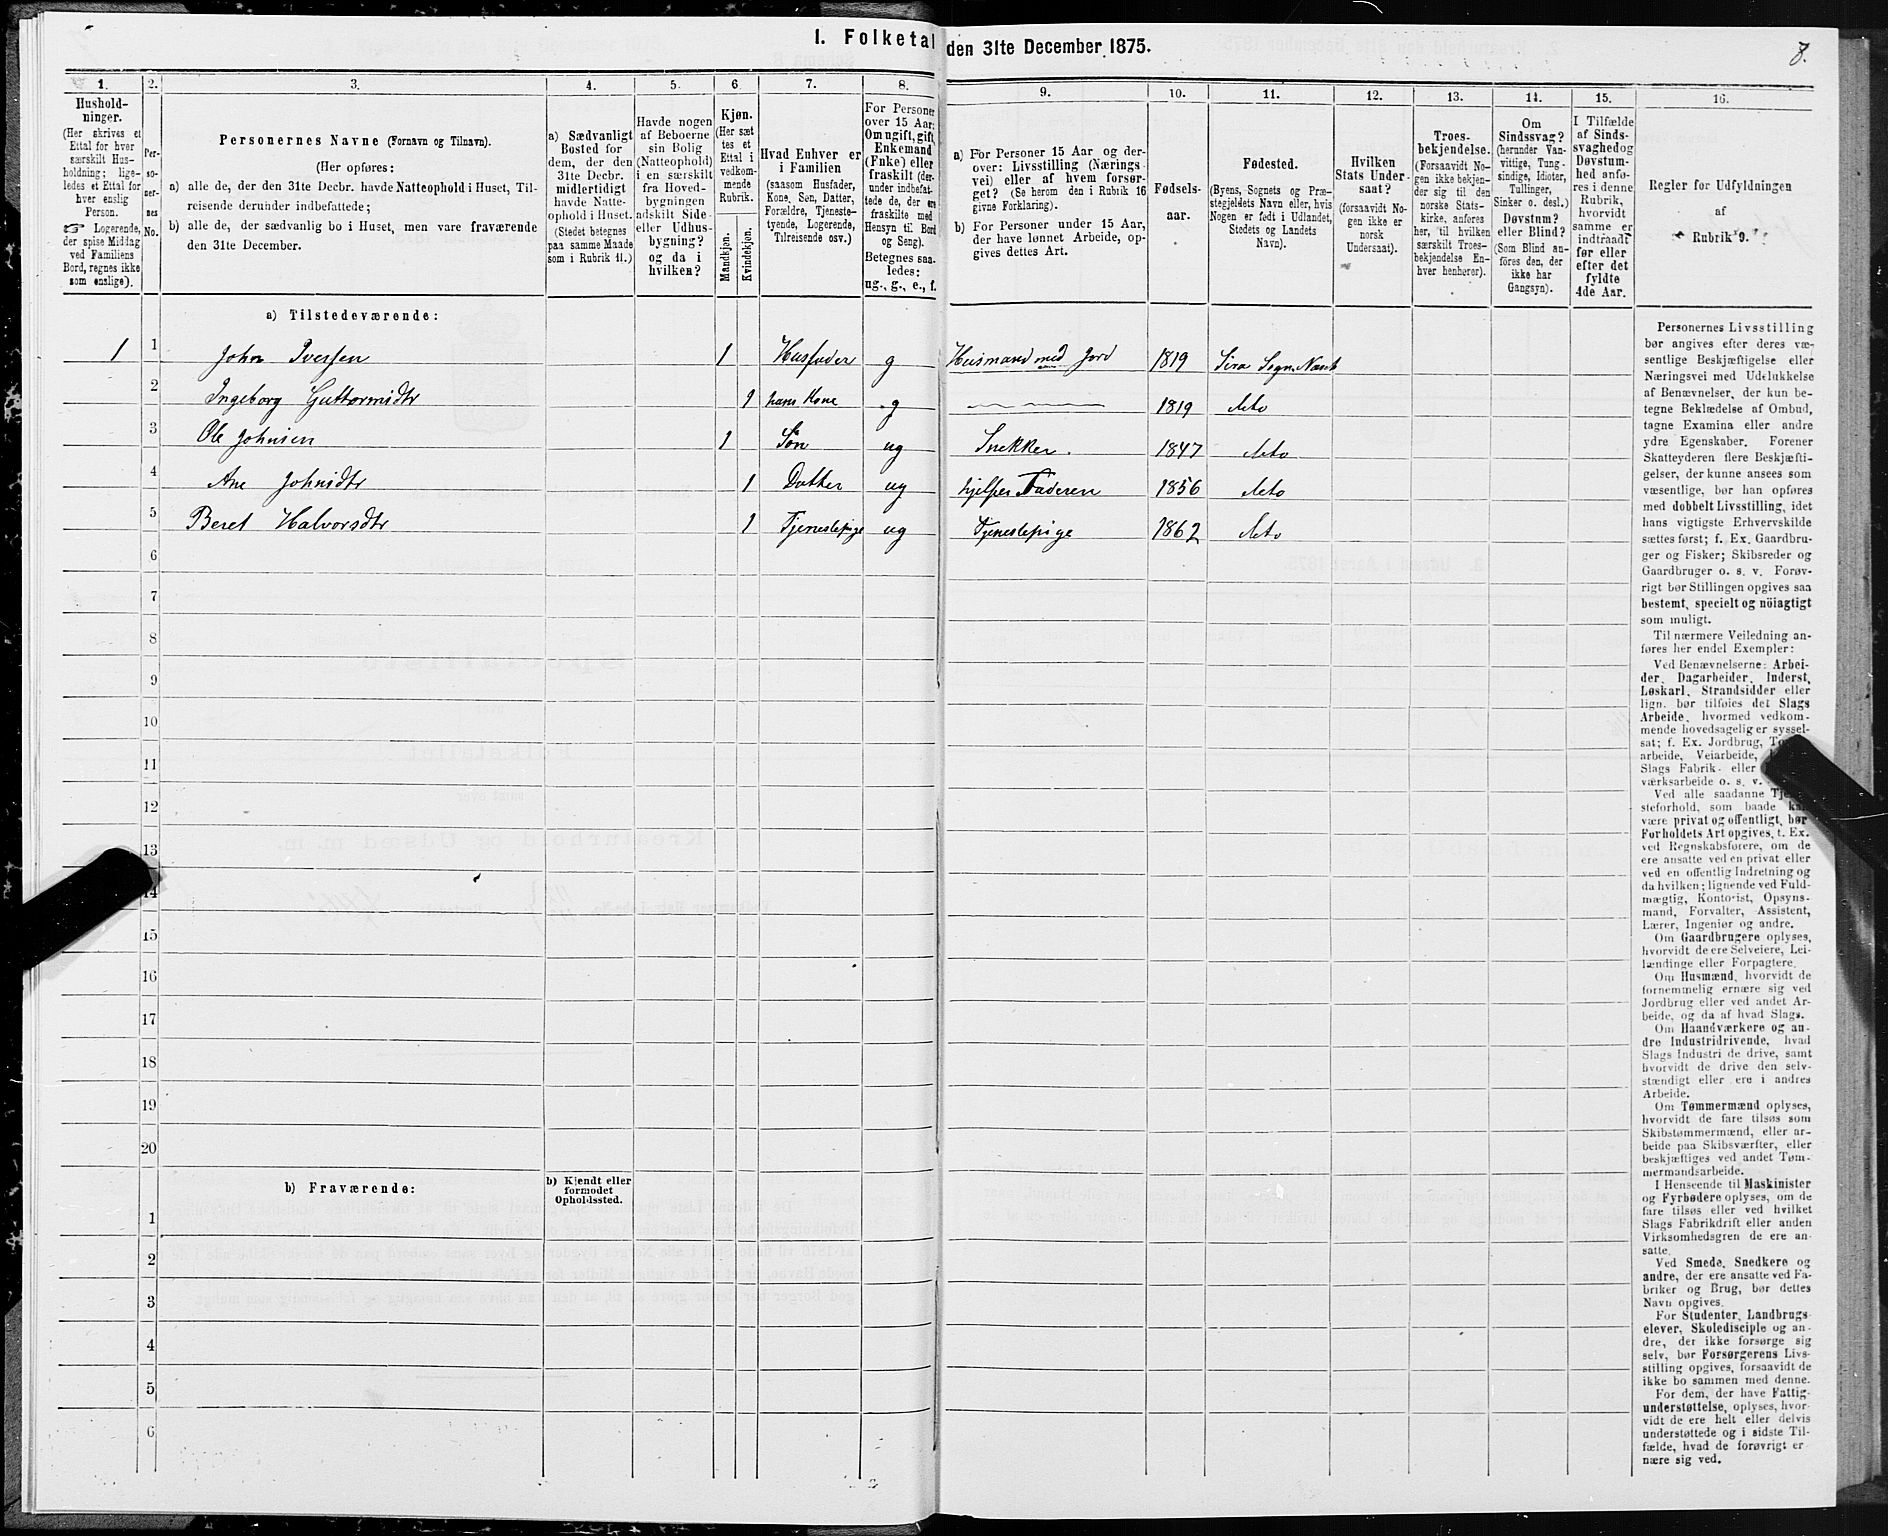 I. Folketal den 31te December 1875.
8.
1.
Hushold-
ninger.
(Her skrives et
Ettal for hver
særskilt Hus-
holdning; lige-
ledes et Ettal for
hver enslig
Person.
☞ Logerende,
der spise Middag
ved Familiens
Bord, regnes ikke
som enslige).
2.
Per-
so-
ner-
nes
No.
3.
Personernes Navne (Fornavn og Tilnavn).
(Her opføres:
a) alle de, der den 31te Decbr. havde Natteophold i Huset, Til-
reisende derunder indbefattede;
b) alle de, der sædvanlig bo i Huset, men vare fraværende
den 31te December.
4.
a) Sædvanligt
Bosted for
dem, der den
31te Decbr.
midlertidigt
havde Natte-
ophold i Huset.
(Stedet betegnes
paa samme Maade
som i Rubrik 11.)
5.
Havde nogen
af Beboerne
sin Bolig
(Natteophold)
i en særskilt
fra Hoved-
bygningen
adskilt Side-
eller Udhus-
bygning?
og da i
hvilken?
6.
Kjøn.
(Her sæt
tes et
Ettal i
vedkom-
mende
Rubrik.
Mandkjøn.
Kvindekjøn.
7.
Hvad Enhver er
i Familien
(saasom Husfader,
Kone, Søn, Datter,
Forældre, Tjeneste-
tyende, Logerende,
Tilreisende osv.)
8.
For Personer
over 15 Aar:
Om ugift, gift,
Enkemand
(Enke) eller
fraskilt (der-
under indbefat-
tede de, der ere
fraskilte med
Hensyn til Bord
og Seng).
Betegnes saa-
ledes:
ug., g., e., f.
9.
a) For Personer 15 Aar og der-
over: Livsstilling (Nærings-
vei) eller af hvem forsør-
get? (Se herom den i Rubrik 16
givne Forklaring).
b) For Personer under 15 Aar,
der have lønnet Arbeide, op-
gives dettes Art.
10.
Fødsels-
aar.
11.
Fødested.
(Byens, Sognets og Præ-
stegjeldets Navn eller, hvis
Nogen er født i Udlandet,
Stedets og Landets
Navn).
12.
Hvilken
Stats Under-
saat?
(forsaavidt No-
gen ikke er
norsk
Undersaat).
13.
Troes-
bekjendelse.
(Forsaavidt No-
gen ikke bekjen-
der sig til den
norske Stats-
kirke, anføres
her, til hvilken
særskilt Troes-
bekjendelse En-
hver henhører).
14.
Om
Sindssvag?
(herunder Van-
vittige, Tung-
sindige, Idioter,
Tullinger,
Sinker o. desl.)
Døvstum?
eller Blind?
(Som Blind an-
føres den, der
ikke har
Gangsyn).
15.
I Tilfælde
af Sinds-
svaghed og
Døvstum-
hed anfø-
res i denne
Rubrik,
hvorvidt
samme er
indtraadt
før eller
efter det
fyldte
4de Aar.
16.
Regler for Udfyldningen
af
Rubrik 9.
a) Tilstedeværende:
1 1 John Iversen 1 Husfader g Husmand med Jord 1819 Sira Sogn Næsts
2 Ingeborg Guttormsdtr 1 hans Kone g 1819 deto
3 Ole Johnsen 1 Søn ug Snekker. 1847 deto
4 Ane Johnsdtr 1 Datter ug hjelper Faderen 1856 deto
5 Beret Halvorsdtr 1 Tjenestepige ug Tjenestepige 1862 deto
6
7
8
9
10
11
12
13
14
15
16
17
18
19
20
b) Fraværende:
b) Kjendt eller
formodet
Opholdssted.
1
2
3
4
5
6
Personernes Livsstilling
bør angives efter deres væ-
sentlige Beskjæftigelse eller
Næringsvei med Udelukkelse
af Benævnelser, der kun be-
tegne Beklædelse af Ombud,
tagne Examina eller andre
ydre Egenskaber. Forener
Skatteyderen flere Beskjæfti-
gelser, der kunne ansees som
væsentlige, bør han opføres
med dobbelt Livsstilling, idet
hans vigtigste Erhvervskilde
sættes først; f. Ex. Gaardbru-
ger og Fisker; Skibsreder og
Gaardbruger o. s. v. Forøv-
rigt bør Stillingen opgives saa
bestemt, specielt og nöiagtigt
som muligt.
Til nærmere Veiledning an-
føres her endel Exempler:
Ved Benævnelserne: Arbei-
der, Dagarbeider, Inderst,
Løskarl, Strandsidder eller
lign. bør tilføies det Slags
Arbeide, hvormed vedkom-
mende hovedsagelig er syssel-
sat; f. Ex. Jordbrug,
arbeide, Veiarbeide,
Slags Fabrik- eller
værksarbeide o. s. v.
Ved alle saadanne
steforhold, som baade
være privat og offentligt, bør
Forholdets Art opgives, t. Ex.
ved Regnskabsførere, om de
ere ansatte ved en privat eller
ved en offentlig Indretning og
da hvilken; lignende ved Fuld-
mægtig, Kontorist, Opsyns-
mand, Forvalter, Assistent,
Lærer, Ingeniør og andre.
Om Gaardbrugere oplyses,
hvorvidt de ere Selveiere, Lei-
lændinge eller Forpagtere.
Om Husmænd, hvorvidt de
fornemmelig ernære sig ved
Jordbrug eller ved andet Ar-
beide, og da af hvad Slags.
Om Haandværkere og an-
dre Industridrivende, hvad
Slags Industri de drive, samt
hvorvidt de drive den selv-
stændigt eller ere i andres
Arbeide.
Om Tømmermænd oplyses,
hvorvidt de fare tilsøs som
Skibstømmermænd, eller ar-
beide paa Skibsværfter, eller
beskjæftiges ved andet Tøm-
mermandsarbeide.
I Henseende til Maskinister
og Fyrbødere oplyses, om de
fare tilsøs eller ved hvilket
Slags Fabrikdrift eller anden
Virksomhedsgren de ere an-
satte.
Ved Smede, Snedkere og
andre, der ere ansatte ved Fa-
briker og Brug, bør dettes
Navn opgives.
For Studenter, Landbrugs-
elever, Skoledisciple og an-
dre, der ikke forsørge sig
selv, bør Forsørgerens Livs-
stilling opgives, forsaavidt de
ikke bo sammen med denne.
For dem, der have Fattig-
understøttelse, oplyses, hvor-
vidt de ere helt eller delvis
understøttede og i sidste Til-
fælde, hvad de forøvrigt er
nære sig ved.